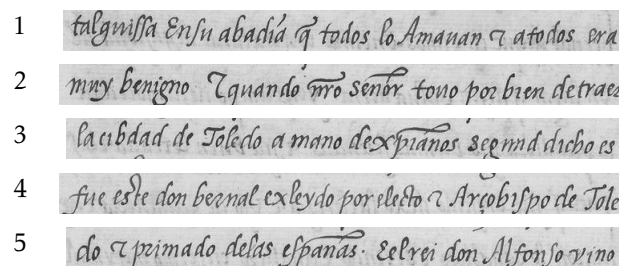 1 talguissa Ensu abadía q̃ todos lo Amauan ⁊ atodos era
2 muy benigno ⁊ quando nr̃o señor touo por bien detraer
3 lacibdad de Toledo a mano dexpianos segund dicho es
4 fue este don bernal exleydo por electo ⁊ Arçobispo de Tole
5 do ⁊ primado delas españas. Eelrei don Alfonso vino